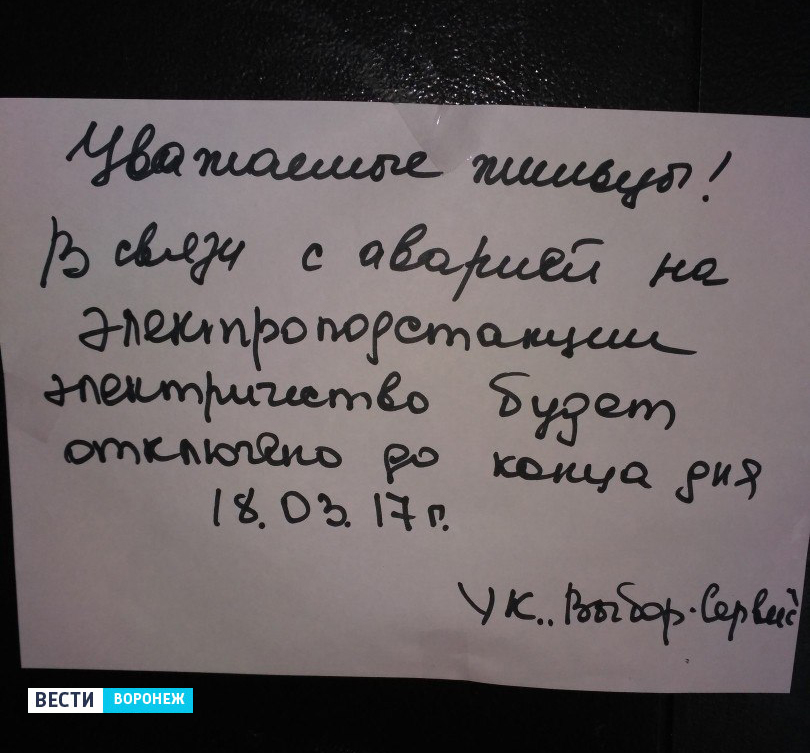 Уважаемые жильцы!
В связи с аварией на
электроподстанции
электричество будет
отключено до конца дня
18.03.17г.
УК „Выбор-Сервис
ВЕСТИ ВОРОНЕЖ